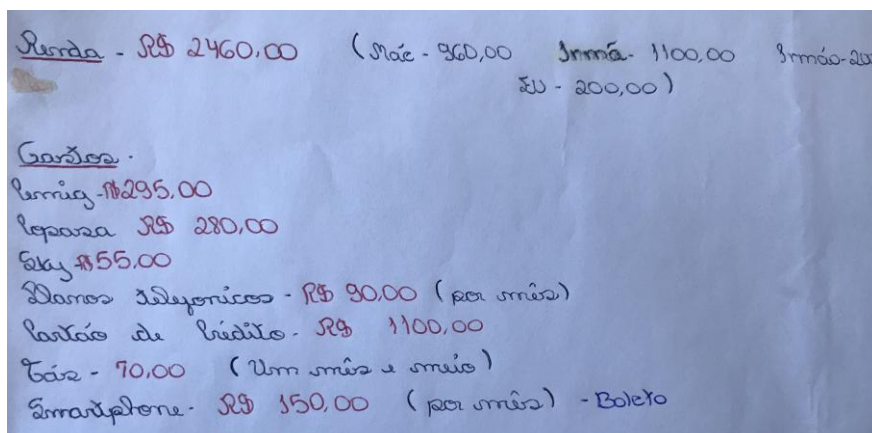 Renda - R$ 2460,00 (Mãe - 960,00 Irmã - 1100,00 Irmão - 20
EU - 200,00)
Gastos.
Cemig - R$ 295,00
Copasa R$ 280,00
Sky R$ 55,00
Planos telefonicos - R$ 90,00 (por mês)
Cartão de Crédito - R$ 1100,00
Gás - 70,00 (Um mês e meio)
Smartphone - R$ 150,00 (por mês) - Boleto